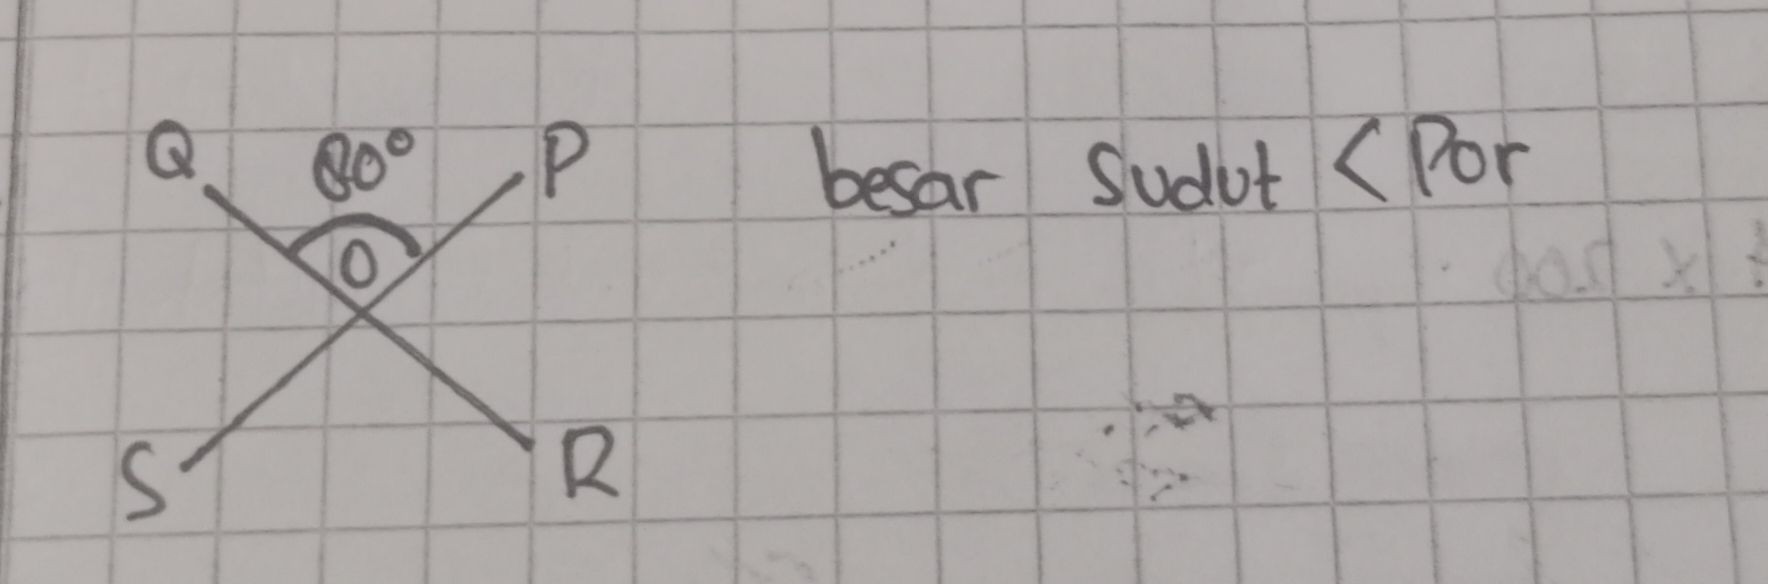 Q 80° P besar sudut < Por
O
S R